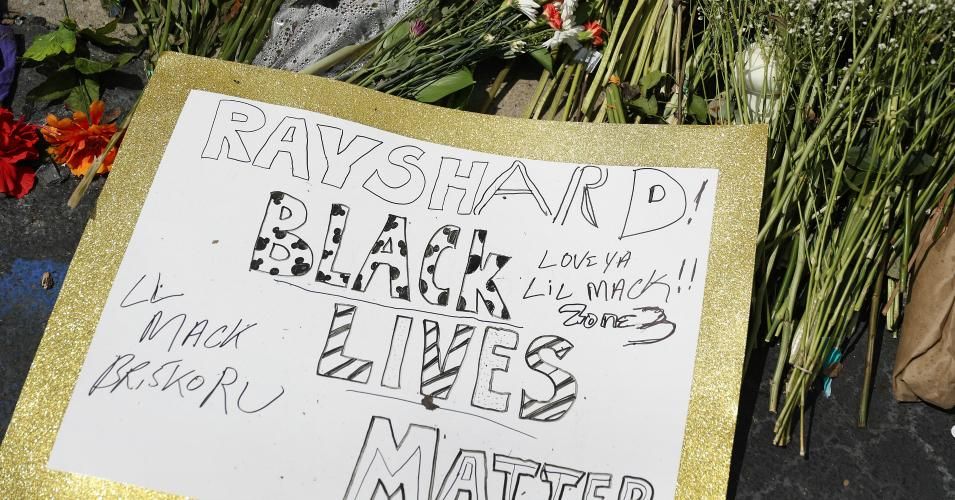 RAYSHARD!
BLACK
LIVES
MATTER
LOVE YA
LIL MACK!!
Zone 3
LIL
MACK
BRISKORU